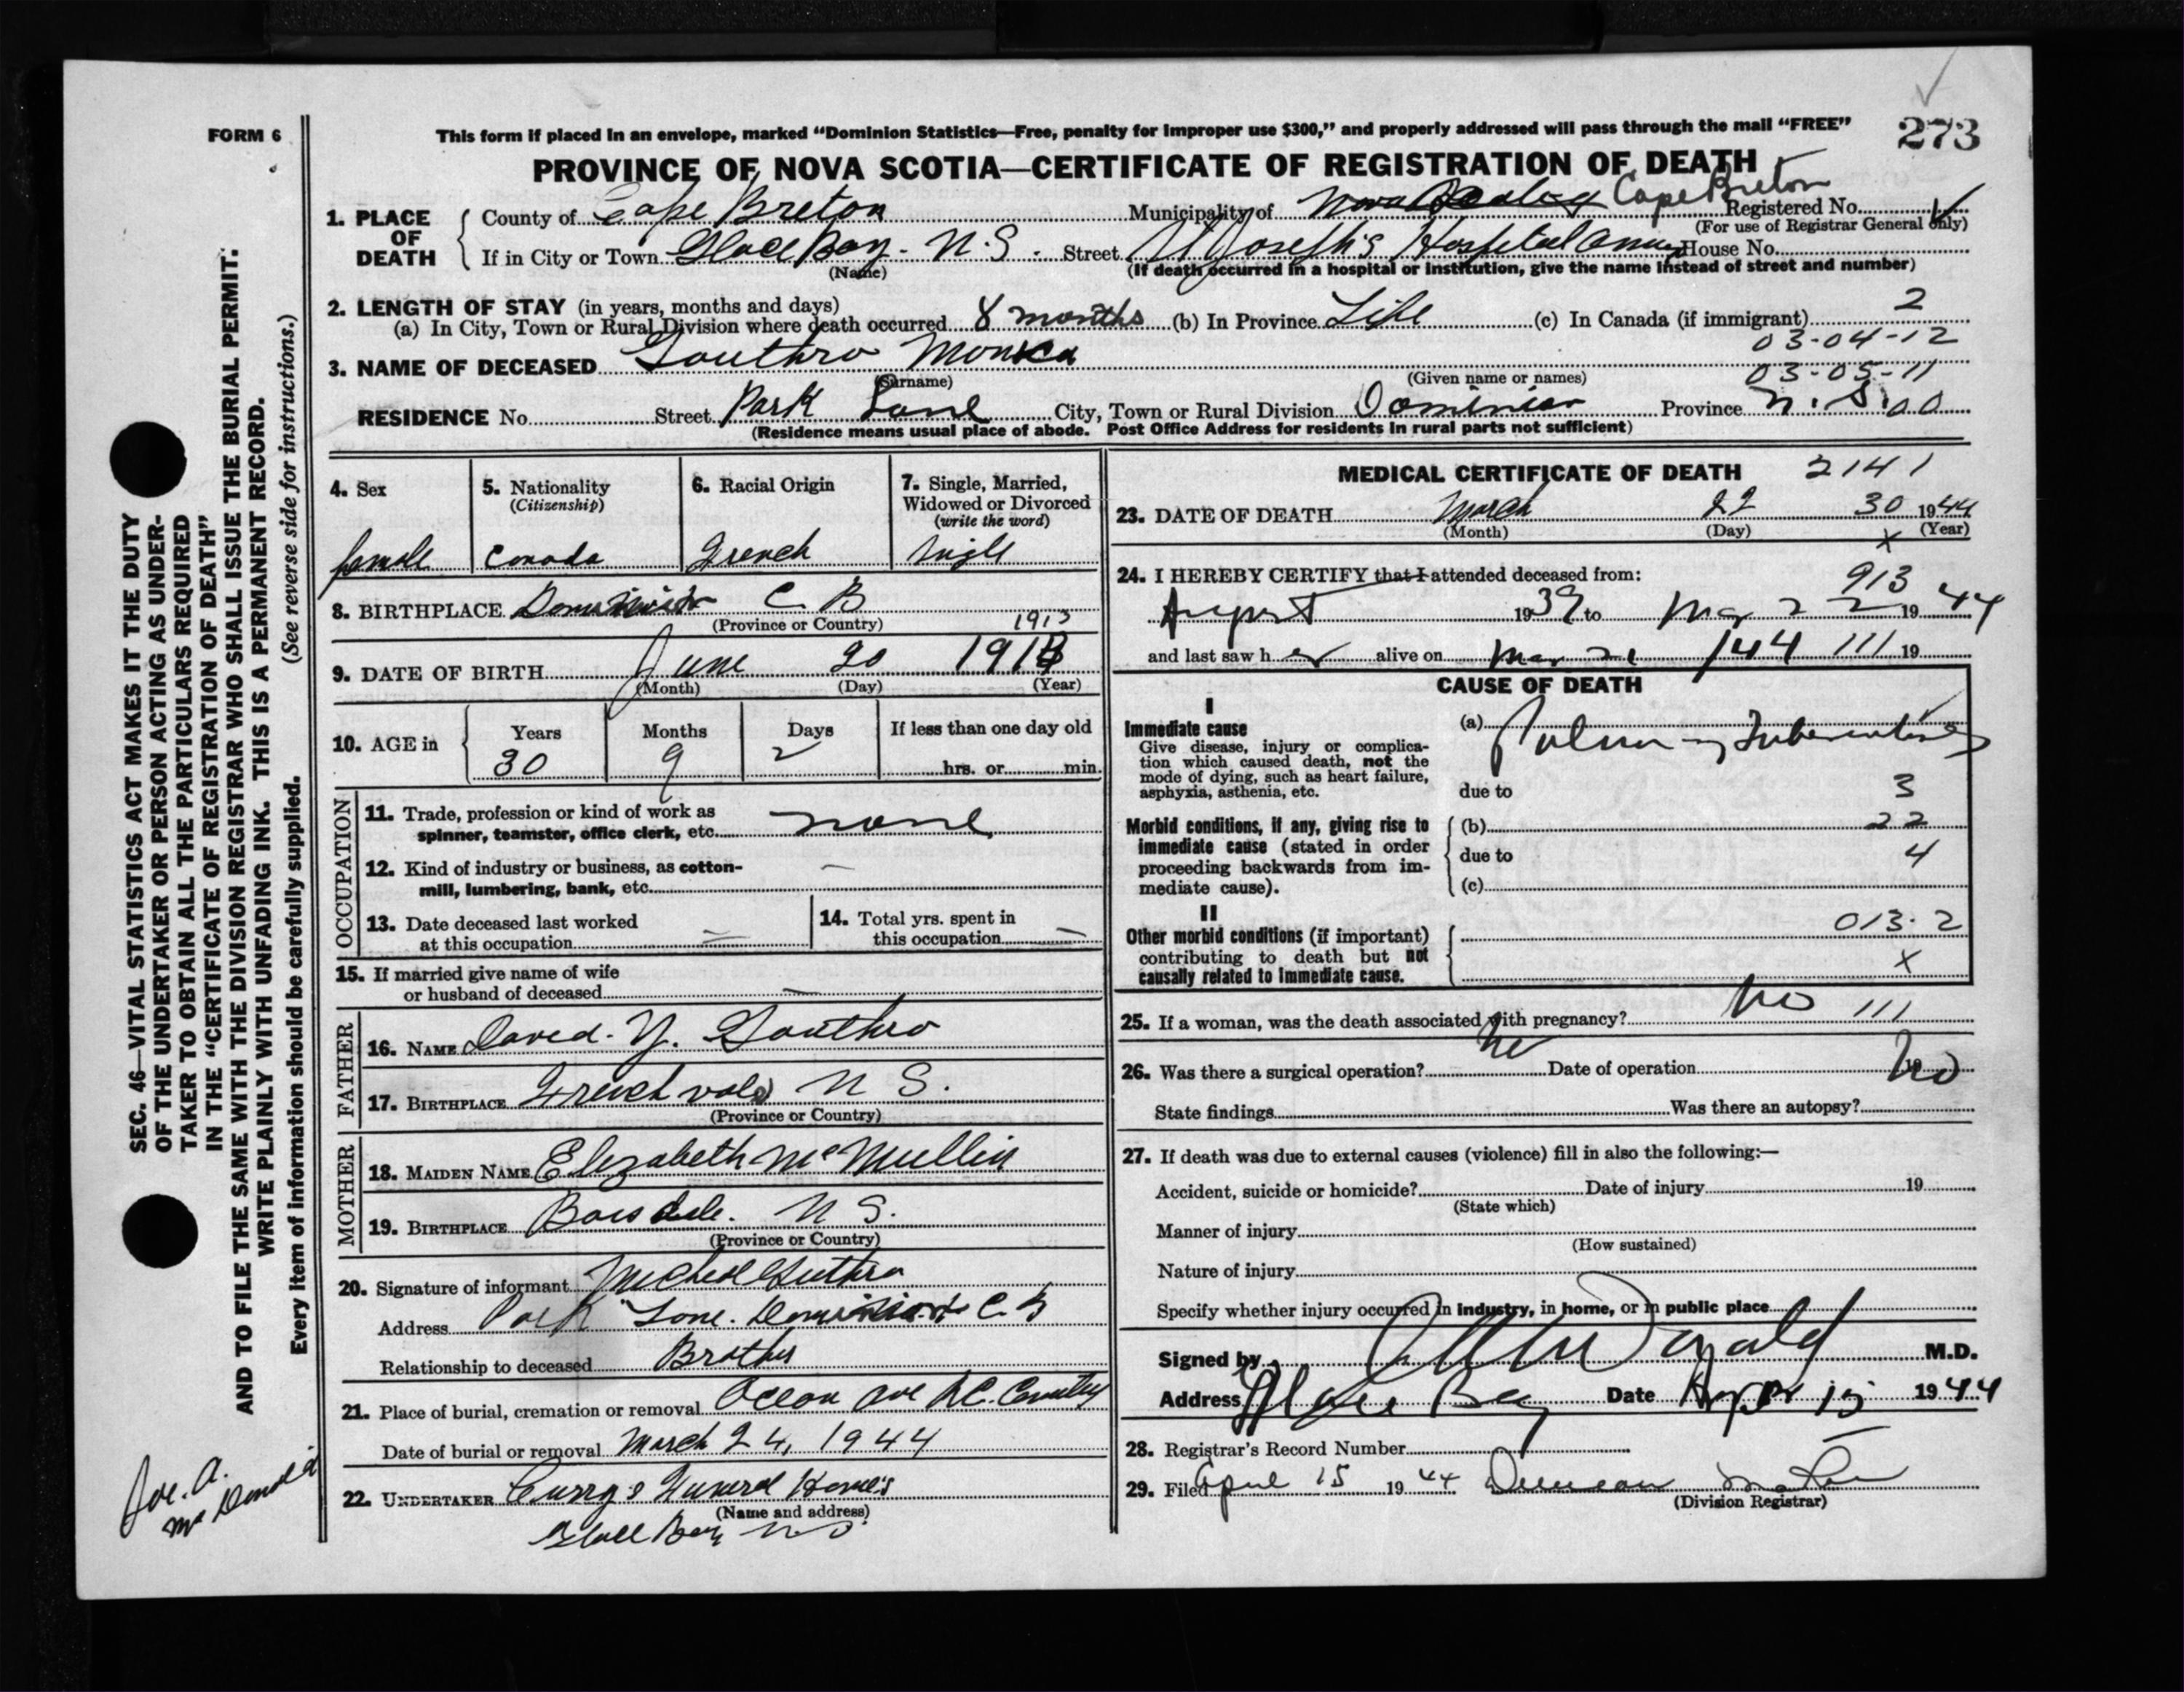 FORM 6
This form if placed in an envelope, marked “Dominion Statistics—Free, penalty for improper use $300,” and properly addressed will pass through the mail “FREE”
273
PROVINCE OF NOVA SCOTIA—CERTIFICATE OF REGISTRATION OF DEATH
1. PLACE OF DEATH
County of Cape Breton Municipality of Nova Scotia Cape Breton Registered No.
(For use of Registrar General only)
If in City or Town Glace Bay - N.S. Street St Joseph's Hospital Annex House No.
(Name) (If death occurred in a hospital or institution, give the name instead of street and number)
2. LENGTH OF STAY (in years, months and days)
(a) In City, Town or Rural Division where death occurred 8 months (b) In Province Life (c) In Canada (if immigrant) 2
03-04-12
3. NAME OF DECEASED Gouthro Monica
(Surname) (Given name or names) 03-05-11
RESIDENCE No. Street Park Lane City, Town or Rural Division Dominion Province N.S. 00
(Residence means usual place of abode. Post Office Address for residents in rural parts not sufficient)
4. Sex
female
5. Nationality
(Citizenship)
Canada
6. Racial Origin
French
7. Single, Married, Widowed or Divorced
(write the word)
single
8. BIRTHPLACE Dominion C B
(Province or Country)
1913
9. DATE OF BIRTH June 20 1913
(Month) (Day) (Year)
10. AGE in
Years Months Days If less than one day old
30 9 2 hrs. or min.
OCCUPATION
11. Trade, profession or kind of work as
spinner, teamster, office clerk, etc. none
12. Kind of industry or business, as cotton-
mill, lumbering, bank, etc. —
13. Date deceased last worked
at this occupation —
14. Total yrs. spent in
this occupation —
15. If married give name of wife
or husband of deceased —
FATHER
16. NAME David. Y. Gouthro
17. BIRTHPLACE Frenchvale N S.
(Province or Country)
MOTHER
18. MAIDEN NAME Elizabeth McMullin
19. BIRTHPLACE Boisdale. N S.
(Province or Country)
20. Signature of informant Micheal Guthro
Address Park Lane. Dominion C B
Relationship to deceased Brother
21. Place of burial, cremation or removal Ocean Ave R.C. Cemetery
Date of burial or removal March 24, 1944
22. UNDERTAKER Curry's Funeral Home's
(Name and address)
Glace Bay N.S.
MEDICAL CERTIFICATE OF DEATH 2141
23. DATE OF DEATH March 22 30 1944
(Month) (Day) (Year)
x
24. I HEREBY CERTIFY that I attended deceased from:
913
August 1939 to Mar 22 1944
and last saw her alive on Mar 21 / 44 111 19
CAUSE OF DEATH
I
Immediate cause
Give disease, injury or complica-
tion which caused death, not the
mode of dying, such as heart failure,
asphyxia, asthenia, etc.
(a) Pulmonary Tuberculosis
due to 3
Morbid conditions, if any, giving rise to
immediate cause (stated in order
proceeding backwards from im-
mediate cause).
(b) 22
due to 4
(c)
II
Other morbid conditions (if important)
contributing to death but not
causally related to immediate cause.
013.2
x
25. If a woman, was the death associated with pregnancy? No 111
26. Was there a surgical operation? No Date of operation 19
State findings Was there an autopsy? No
27. If death was due to external causes (violence) fill in also the following:—
Accident, suicide or homicide? Date of injury 19
(State which)
Manner of injury
(How sustained)
Nature of injury
Specify whether injury occurred in industry, in home, or in public place
Signed by McDonald M.D.
Address Glace Bay Date Apr 15 1944
28. Registrar's Record Number
29. Filed April 15 1944 Duncan
(Division Registrar)
SEC. 46—VITAL STATISTICS ACT MAKES IT THE DUTY
OF THE UNDERTAKER OR PERSON ACTING AS UNDER-
TAKER TO OBTAIN ALL THE PARTICULARS REQUIRED
IN THE “CERTIFICATE OF REGISTRATION OF DEATH”
AND TO FILE THE SAME WITH THE DIVISION REGISTRAR WHO SHALL ISSUE THE BURIAL PERMIT.
WRITE PLAINLY WITH UNFADING INK. THIS IS A PERMANENT RECORD.
(See reverse side for instructions.)
Every item of information should be carefully supplied.
Joe. A.
McDonald